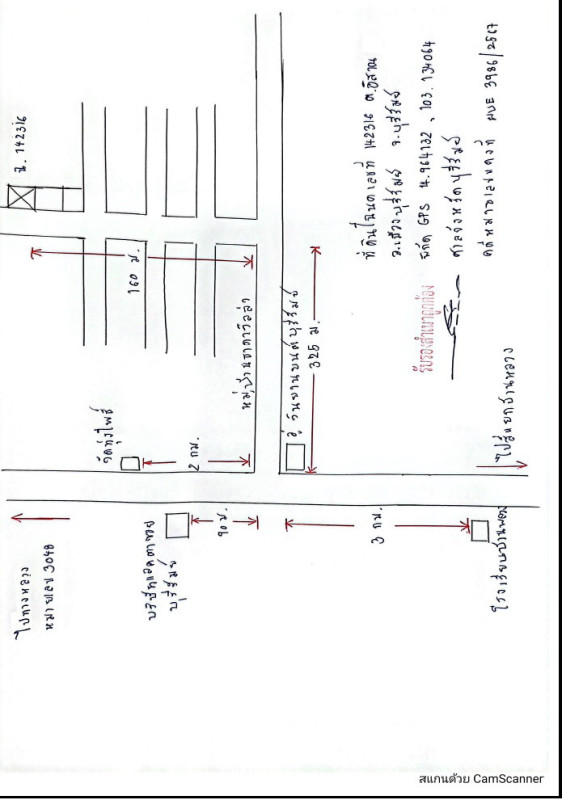 ที่ดินโฉนดเลขที่ 142316 ต.อิสาณ
อ.เมืองบุรีรัมย์ จ.บุรีรัมย์
พิกัด GPS 14.964132 , 103.134064
ศาลจังหวัดบุรีรัมย์
คดีหมายเลขแดงที่ ผบE 3986/2567
รับรองสำเนาถูกต้อง
น. 142316
160 ม.
หมู่บ้านชาดาวิลล่า
อู่ วันยานยนต์บุรีรัมย์
325 ม.
วัดทุ่งโพธิ์
2 กม.
ไปสี่แยกบ้านหลวง
ไปทางหลวง
หมายเลข 3048
บุรีรัมย์
90 ม.
3 กม.
โรงเรียนบ้านพลวง
สแกนด้วย CamScanner